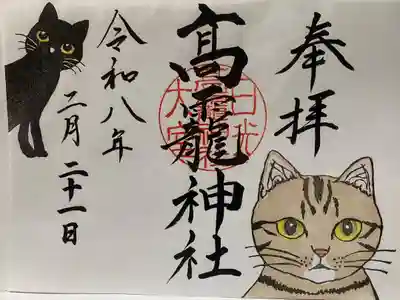 奉拝
高龗神社
令和八年
二月二十一日